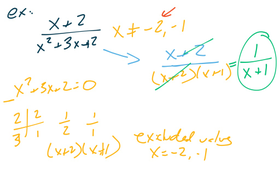 ex:
x+2 / x²+3x+2  x ≠ -2, -1
x+2 / (x+2)(x+1) = 1 / x+1
x²+3x+2=0
2 | 2  1  1
3 | 1  2  1
(x+2)(x+1)
excluded value
x=-2, -1